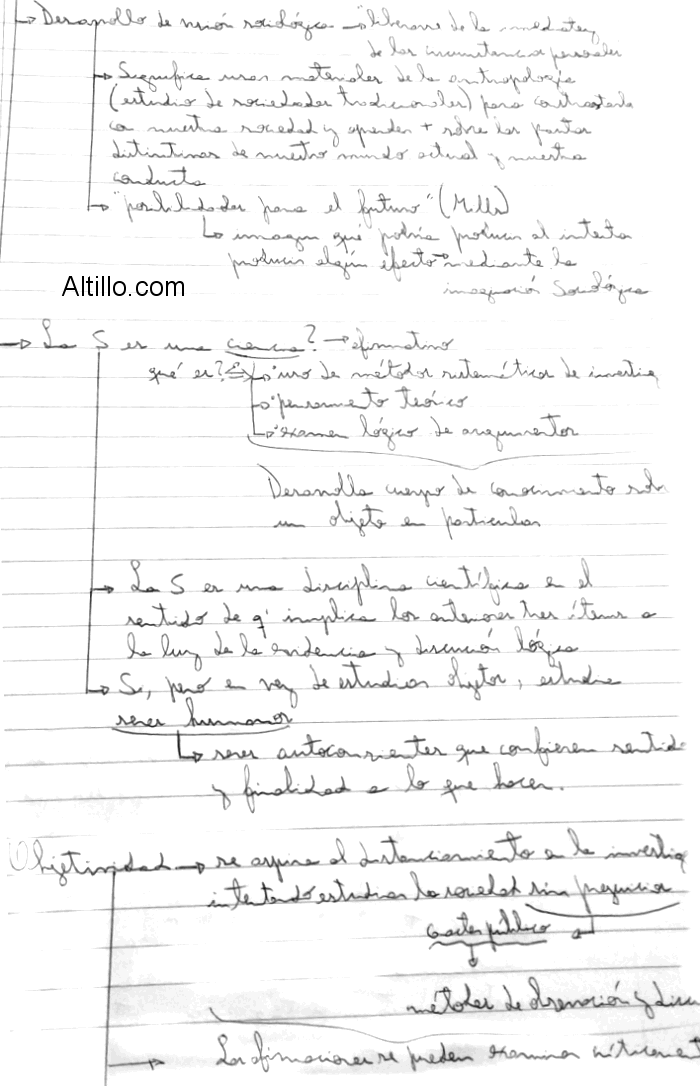 → Desarrollo de visión sociológica → "liberarse de la inmediatez
de las circunstancias personales
→ Significa usar materiales de la antropología
(estudio de sociedades tradicionales) para contrastarla
con nuestra sociedad y aprender + sobre las pautas
distintivas de nuestro mundo actual y nuestra
conducta
→ "posibilidades para el futuro" (Mills)
↳ imagen qué podría producir al intentar
producir algún efecto mediante la
imaginación Sociológica
Altillo.com
→ La S es una ciencia? → afirmativo
qué es? ↳ · uso de métodos sistemáticos de investig
↳ · pensamiento teórico
↳ · examen lógico de argumentos
Desarrolla cuerpo de conocimiento sob
un objeto en particular
→ La S es una disciplina científica en el
sentido de q' implica los anteriores tres ítems a
la luz de la evidencia y discusión lógica
↳ Si, pero en vez de estudiar objetos, estudia
seres humanos
↳ seres autoconscientes que confieren sentido
y finalidad a lo que hacen.
Objetividad → se aspira al distanciamiento en la investig
intentando estudiar la sociedad sin prejuicios
carácter público
métodos de observación y discu
→ Las afirmaciones se pueden examinar críticament